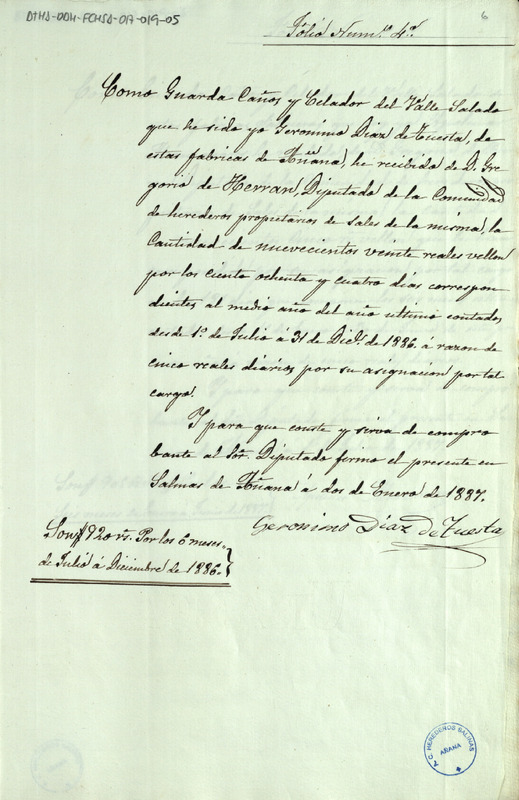 DTHA-DDH-FCHSA-017-019-05
6
Folio Num.º 4.º
Como Guarda Caños y Celador del Valle Salado
que he sido yo Geronimo Diaz de Tuesta, de
estas fabricas de Añana, he recibido de D. Gre
gorio de Herran, Diputado de la Comunidad
de herederos propietarios de sales de la misma, la
Cantidad de nuevecientos veinte reales vellon
por los ciento ochenta y cuatro dias correspon
dientes al medio año del año ultimo contados
desde 1.º de Julio á 31 de Dic.e de 1886. á razon de
cinco reales diarios por su asignacion por tal
cargo.
Y para que conste y sirva de compro
bante al Sor. Diputado firmo el presente en
Salinas de Añana á dos de Enero de 1887.
Geronimo Diaz de Tuesta
Son 920 rs. Por los 6 meses
de Julio á Diciembre de 1886.
C. HEREDEROS SALINAS
AÑANA